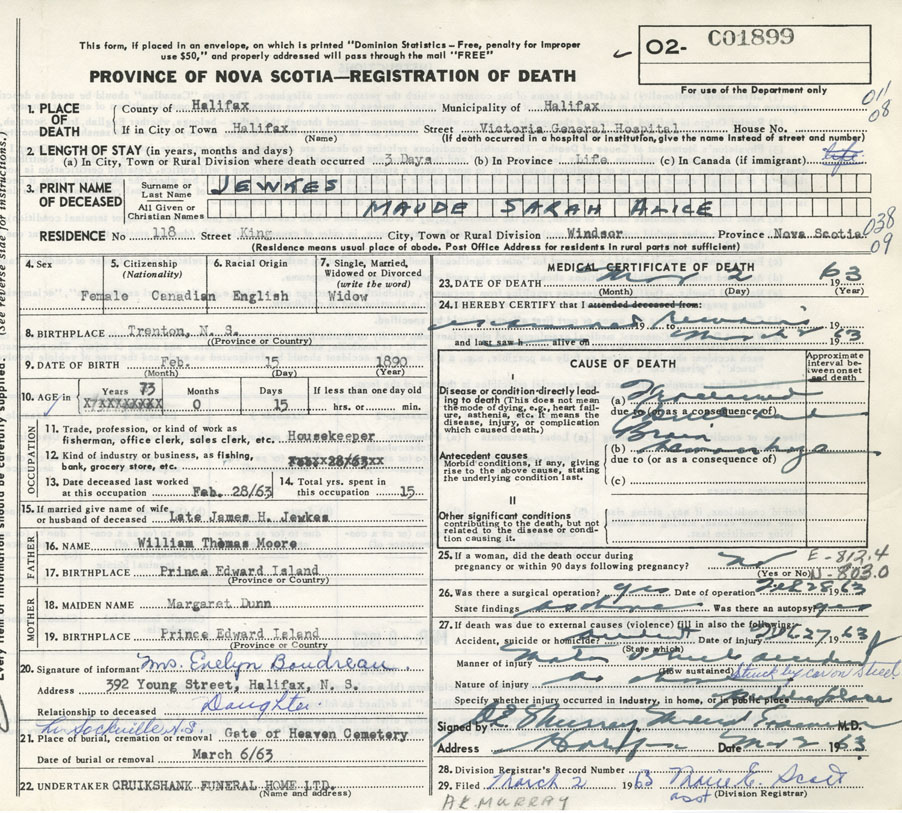 This form, if placed in an envelope, on which is printed "Dominion Statistics – Free, penalty for improper
use $50," and properly addressed will pass through the mail "FREE"
✓ O2- C01899
PROVINCE OF NOVA SCOTIA—REGISTRATION OF DEATH
For use of the Department only
011
08
1. PLACE OF DEATH
County of Halifax Municipality of Halifax
If in City or Town Halifax Street Victoria General Hospital House No.
(Name) (If death occurred in a hospital or institution, give the name instead of street and number)
2. LENGTH OF STAY (in years, months and days)
(a) In City, Town or Rural Division where death occurred 3 Days (b) In Province Life (c) In Canada (if immigrant) life
3. PRINT NAME OF DECEASED
Surname or Last Name JEWKES
All Given or Christian Names MAUDE SARAH ALICE
RESIDENCE No 118 Street King City, Town or Rural Division Windsor Province Nova Scotia
(Residence means usual place of abode. Post Office Address for residents in rural parts not sufficient)
038
09
4. Sex Female
5. Citizenship (Nationality) Canadian
6. Racial Origin English
7. Single, Married, Widowed or Divorced (write the word) Widow
8. BIRTHPLACE Trenton, N. S.
(Province or Country)
9. DATE OF BIRTH Feb. 15 1890
(Month) (Day) (Year)
10. AGE in Years 73 Months 0 Days 15 If less than one day old hrs. or min.
OCCUPATION
11. Trade, profession, or kind of work as fisherman, office clerk, sales clerk, etc. Housekeeper
12. Kind of industry or business, as fishing, bank, grocery store, etc.
13. Date deceased last worked at this occupation Feb. 28/63
14. Total yrs. spent in this occupation 15
15. If married give name of wife or husband of deceased Late James H. Jewkes
FATHER
16. NAME William Thomas Moore
17. BIRTHPLACE Prince Edward Island
(Province or Country)
MOTHER
18. MAIDEN NAME Margaret Dunn
19. BIRTHPLACE Prince Edward Island
(Province or Country)
20. Signature of informant Mrs. Evelyn Boudreau
Address 392 Young Street, Halifax, N. S.
Relationship to deceased Daughter.
Sackville N.S.
21. Place of burial, cremation or removal Gate or Heaven Cemetery
Date of burial or removal March 6/63
22. UNDERTAKER CRUIKSHANK FUNERAL HOME LTD.
(Name and address)
MEDICAL CERTIFICATE OF DEATH
23. DATE OF DEATH Mar 2 1963
(Month) (Day) (Year)
24. I HEREBY CERTIFY that I attended deceased from:
examined 19 to remains 19
and last saw h alive on March 2 1963
CAUSE OF DEATH
Approximate interval between onset and death
I
Disease or condition directly leading to death (This does not mean the mode of dying, e.g., heart failure, asthenia, etc. It means the disease, injury, or complication which caused death.)
(a)
due to (or as a consequence of)
Brain
Antecedent causes
Morbid conditions, if any, giving rise to the above cause, stating the underlying condition last.
(b)
due to (or as a consequence of)
(c)
II
Other significant conditions
contributing to the death, but not related to the disease or condition causing it.
25. If a woman, did the death occur during pregnancy or within 90 days following pregnancy? no
(Yes or No)
E-812.4
N-803.0
26. Was there a surgical operation? yes Date of operation Feb 28 1963
State findings as above Was there an autopsy yes
27. If death was due to external causes (violence) fill in also the following:
Accident, suicide or homicide? accident Date of injury Feb 27 1963
(State which)
Manner of injury Motor vehicle accident
(How sustained) struck by car on street
Nature of injury as above
Specify whether injury occurred in industry, in home, or in public place public place
Signed by Murray Med Examiner M.D.
Address Halifax Date Mar 2 1963
28. Division Registrar's Record Number
29. Filed March 2 1963 E. Scott
asst (Division Registrar)
A K MURRAY
(See reverse side for instructions.)